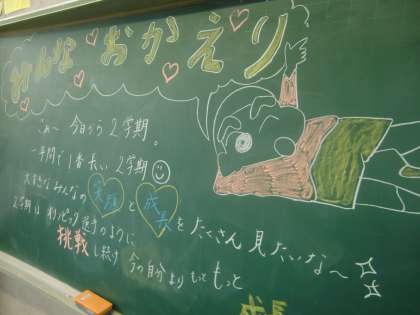 みんな おかえり
さぁ〜 今日から2学期。
一年間で1番長い2学期
大すきなみんなの笑顔と成長をたくさん見たいな〜
2学期は オリンピック選手のように
挑戦し続け 今の自分よりもっともっと
成長